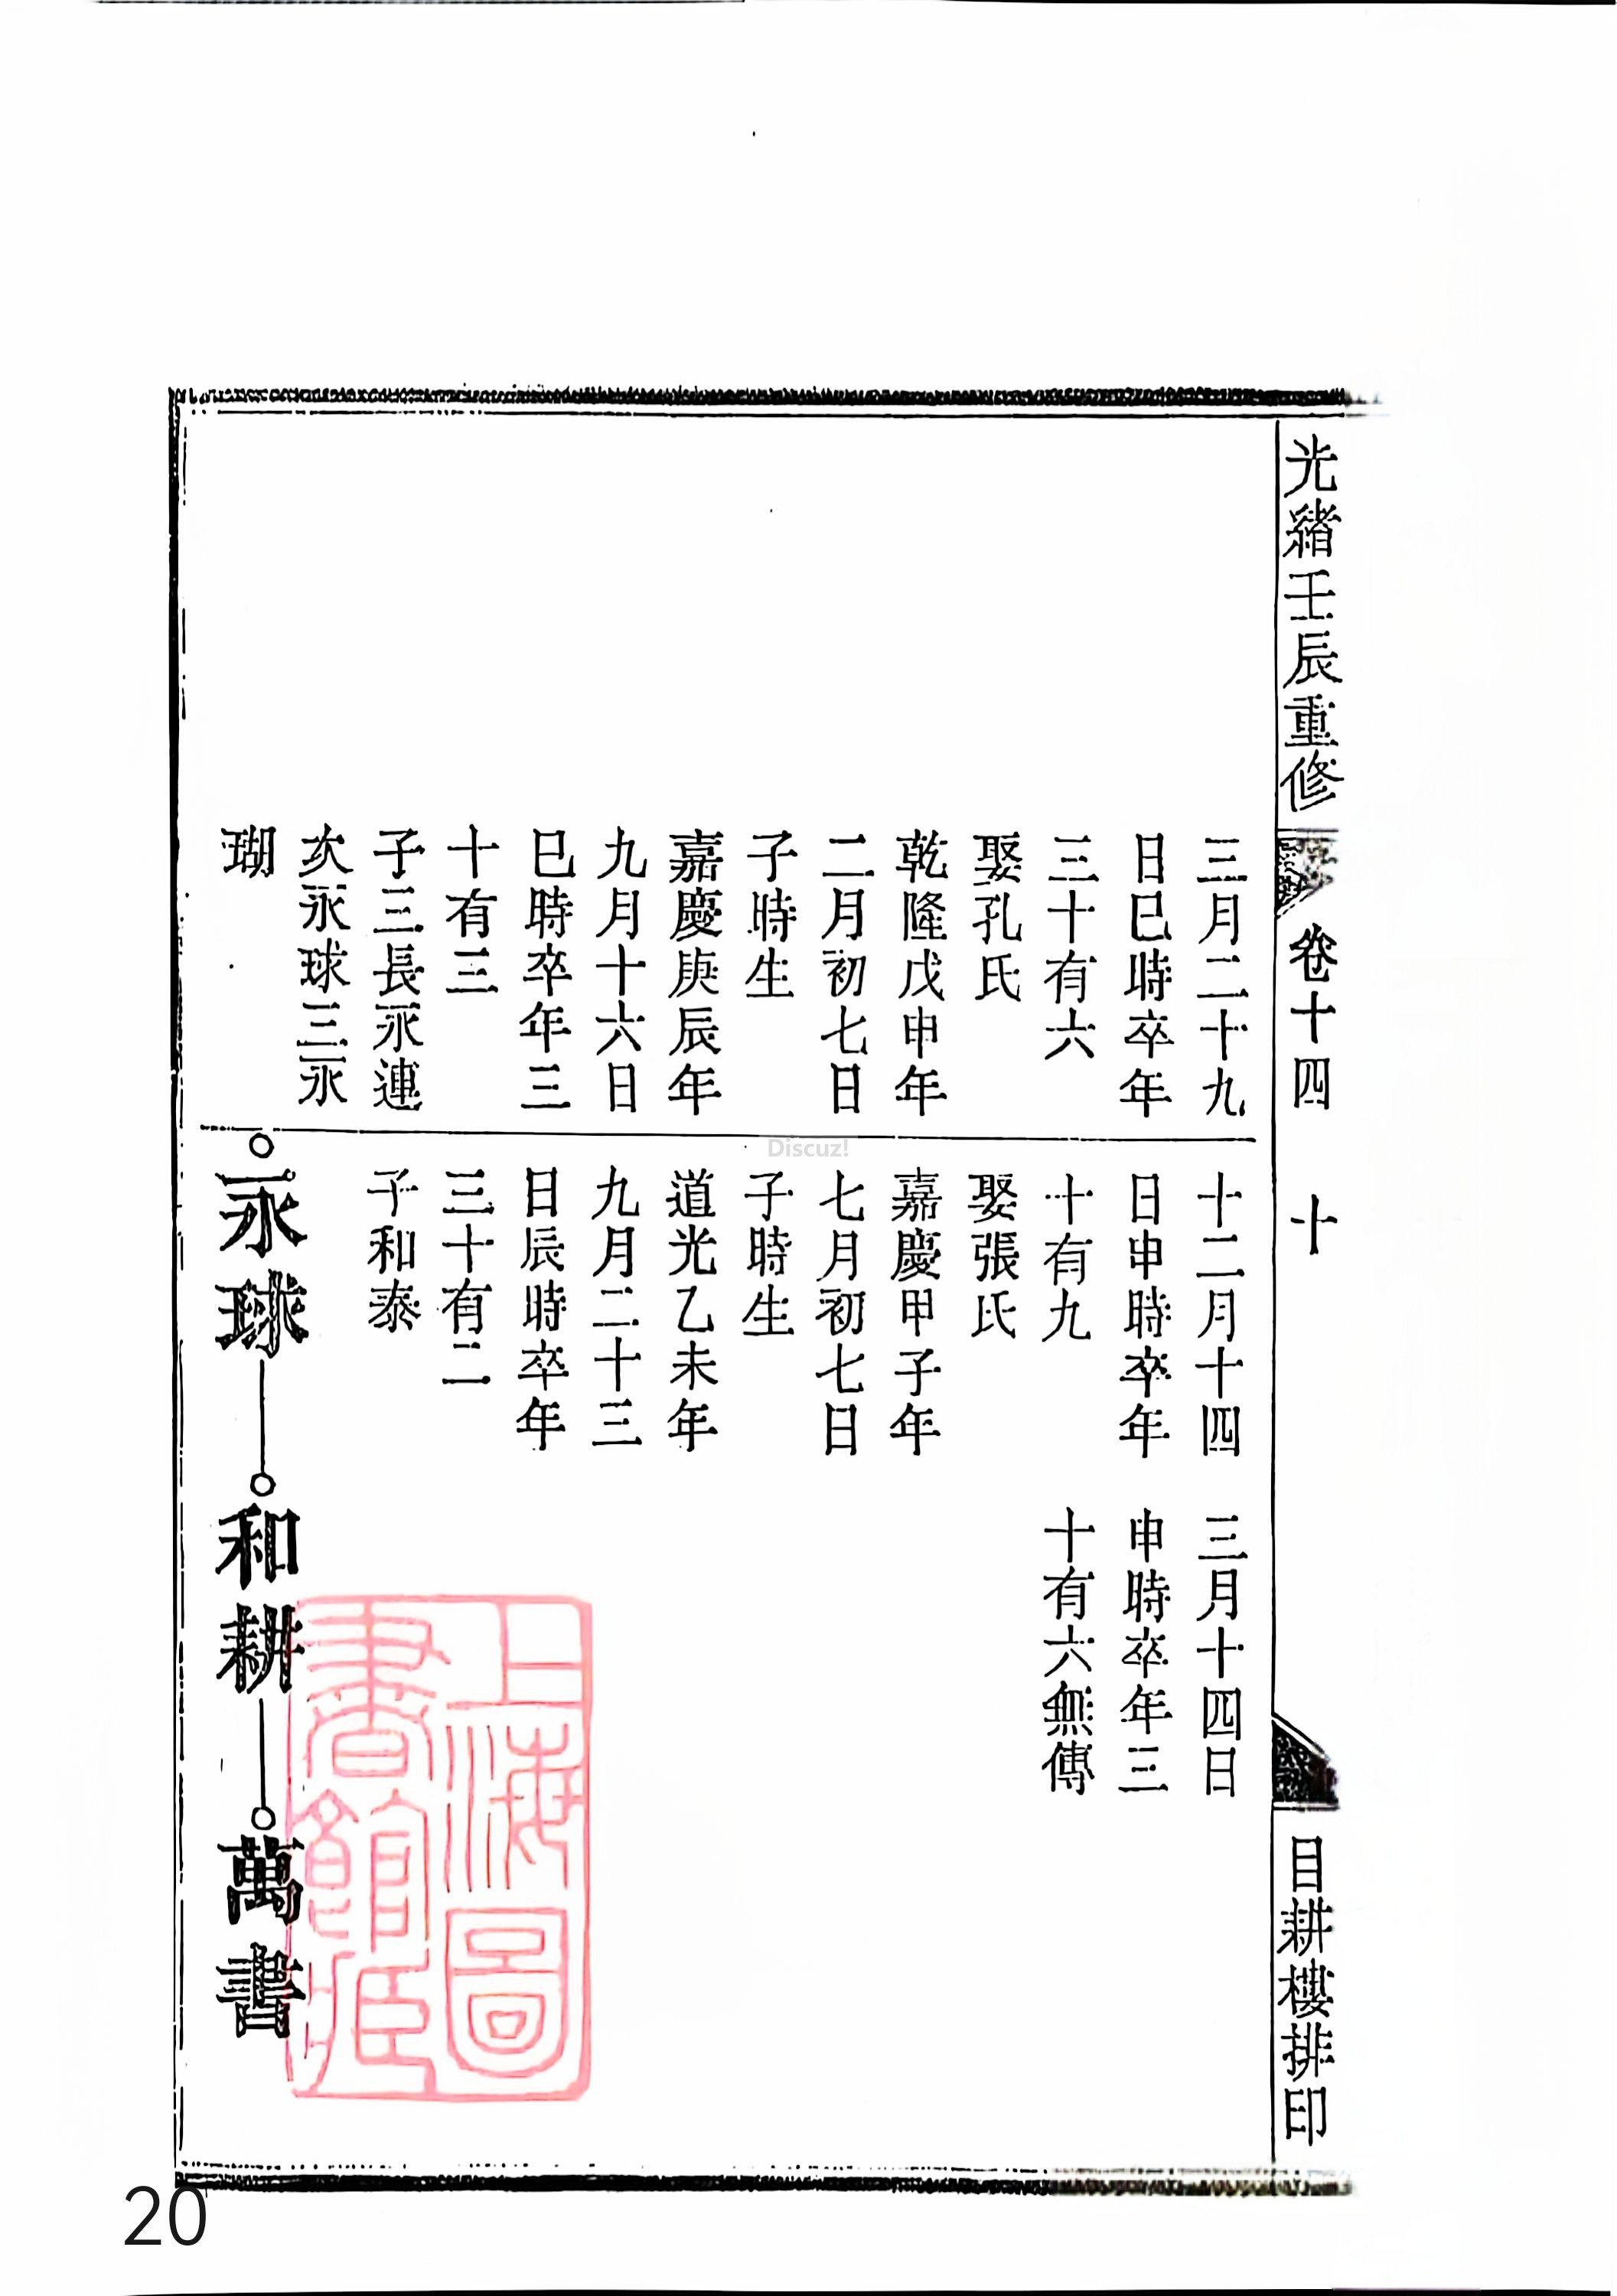 光緒壬辰重修
卷十四
十
目耕樓排印
三月二十九
日巳時卒年
三十有六
娶孔氏
乾隆戊申年
二月初七日
子時生
嘉慶庚辰年
九月十六日
巳時卒年三
十有三
子三長永連
次永球三永
瑚
十二月十四
日申時卒年
十有九
娶張氏
嘉慶甲子年
七月初七日
子時生
道光乙未年
九月二十三
日辰時卒年
三十有二
子和泰
三月十四日
申時卒年三
十有六無傳
永球
和耕
萬書
上海圖
書館藏
Discuz!
20